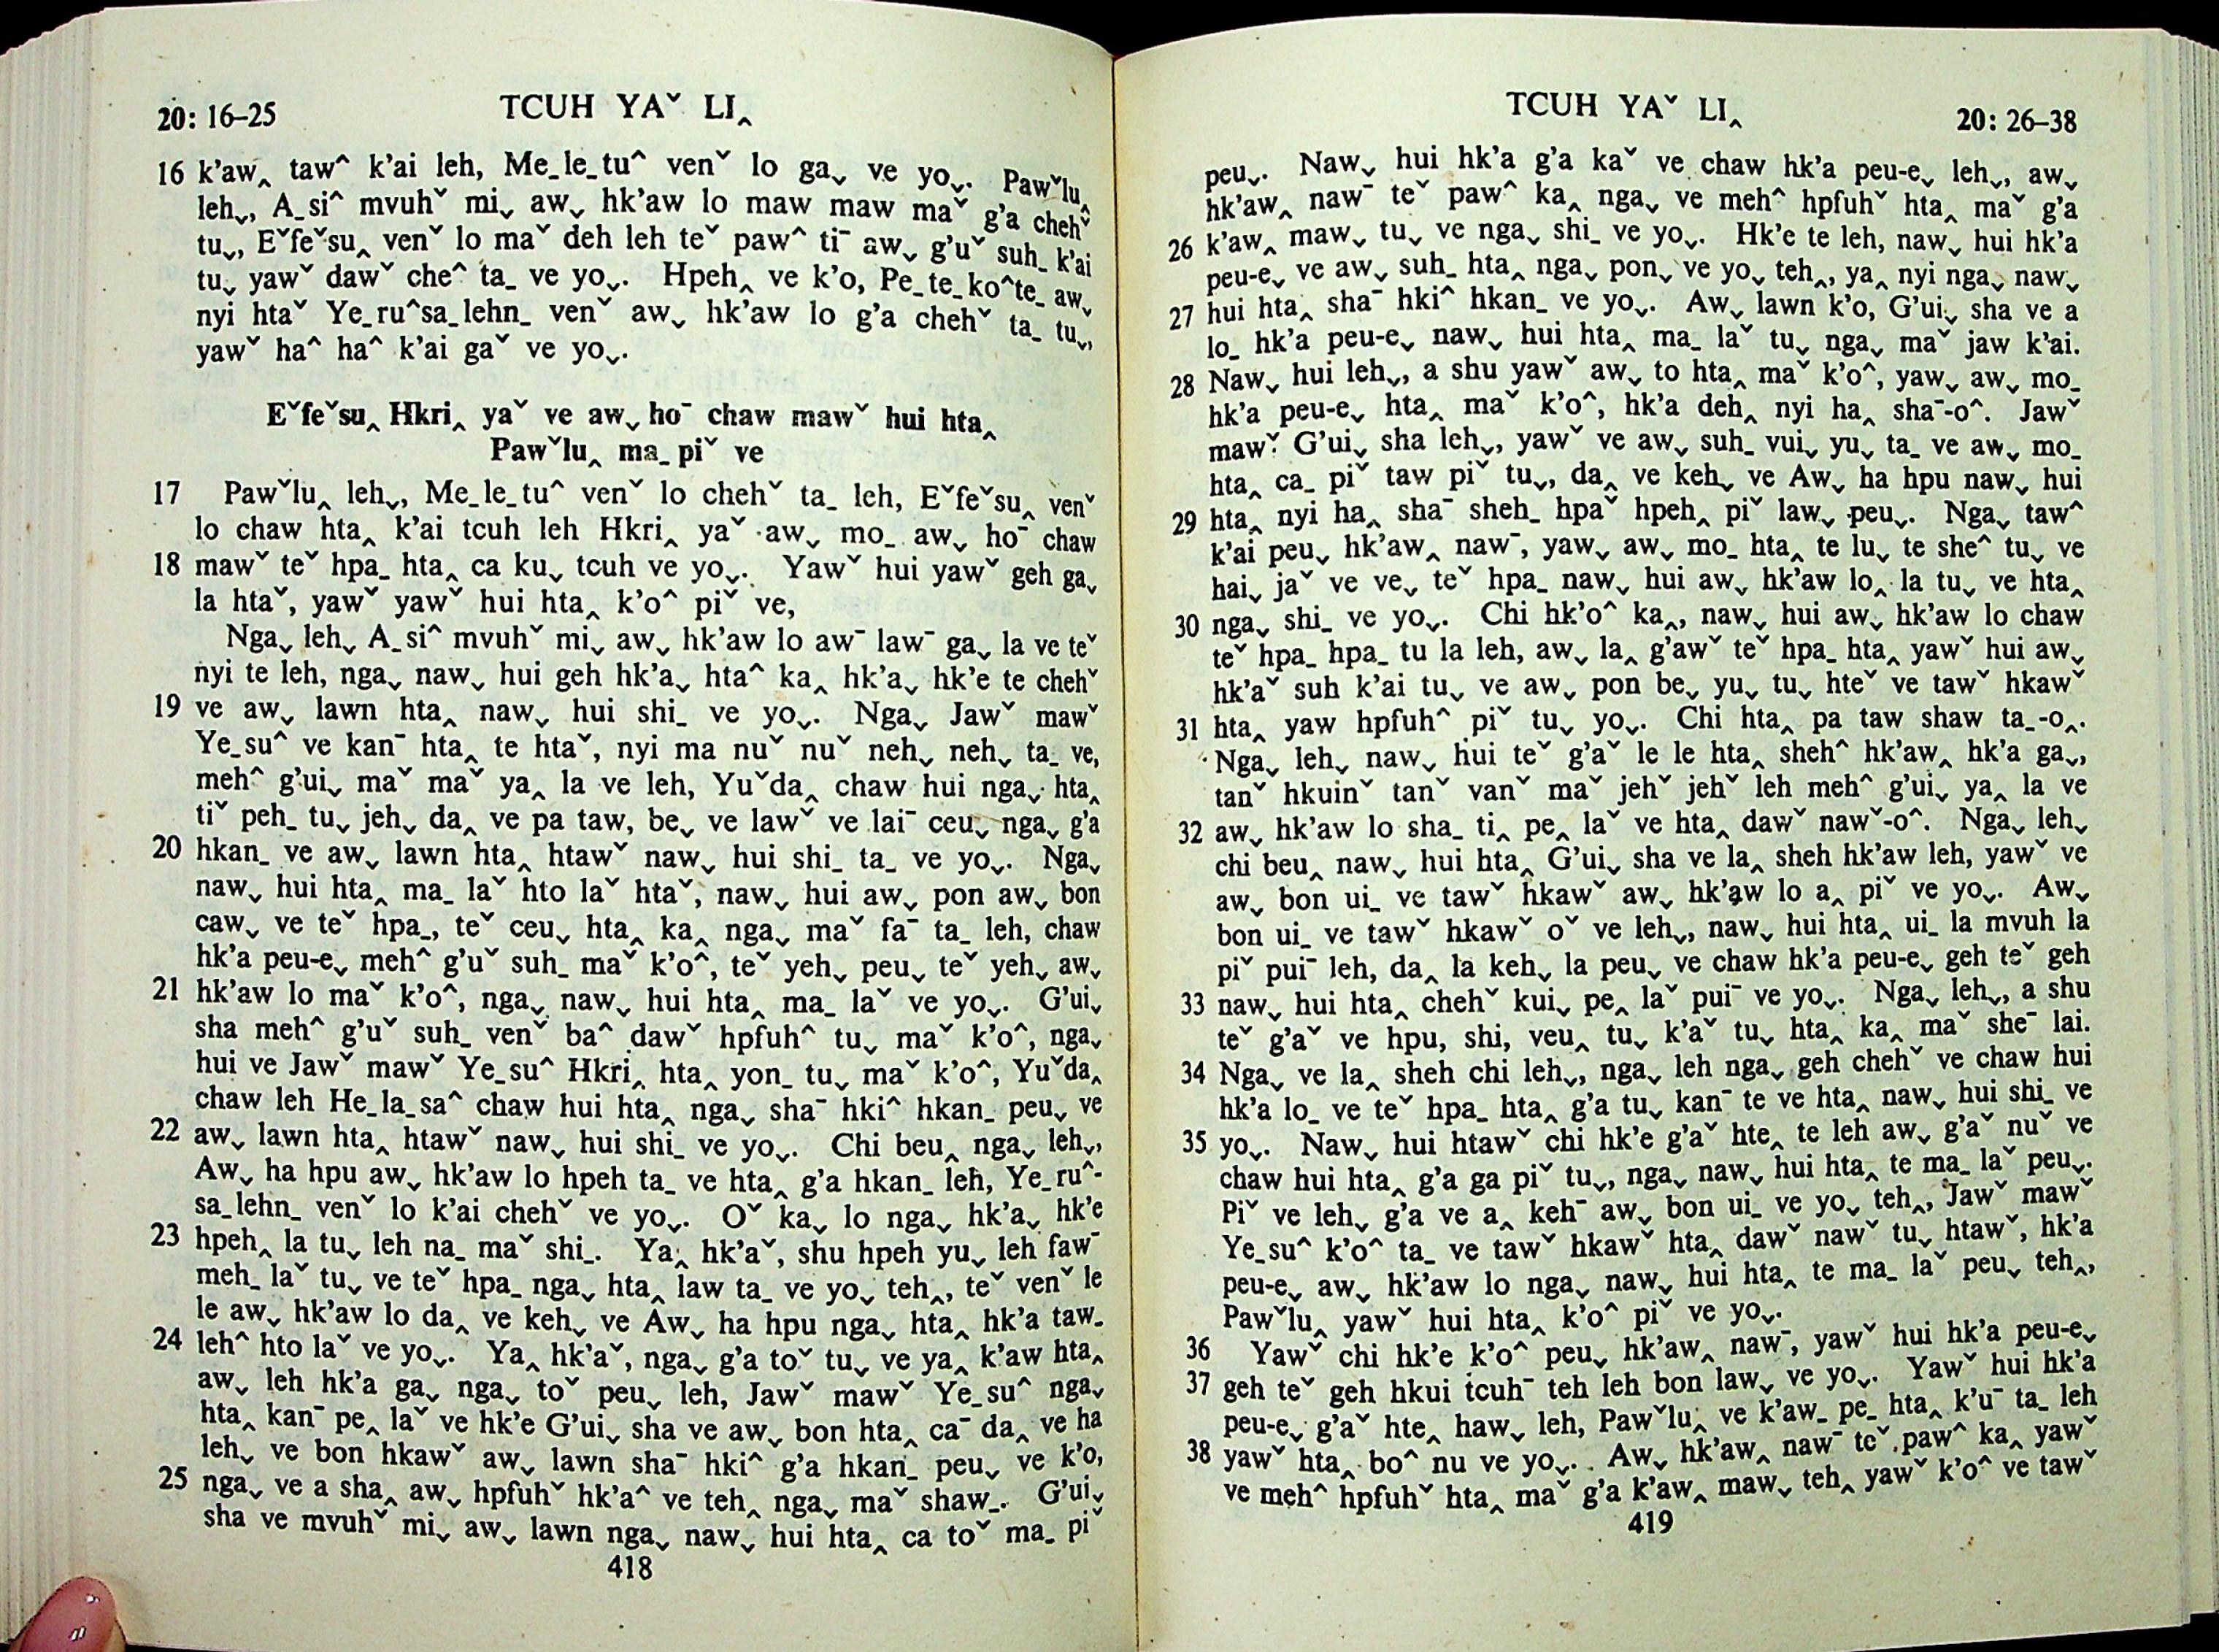 20: 16–25
TCUH YAˇ LI‸
16 k’aw‸ taw^ k’ai leh, Me_le_tu^ venˇ lo ga˯ ve yo˯. Pawˇlu‸
leh˯, A_si^ mvuhˇ mi˯ aw˯ hk’aw lo maw maw maˇ g’a chehˇ
tu˯, Eˇfeˇsu‸ venˇ lo maˇ deh leh teˇ paw^ ti¯ aw˯ g’uˇ suh_ k’ai
tu˯ yawˇ dawˇ che^ ta_ ve yo˯. Hpeh‸ ve k’o, Pe_te_ko^te_ aw˯
nyi htaˇ Ye_ru^sa_lehn_ venˇ aw˯ hk’aw lo g’a chehˇ ta_ tu˯,
yawˇ ha^ ha^ k’ai gaˇ ve yo˯.
Eˇfeˇsu‸ Hkri‸ yaˇ ve aw˯ ho¯ chaw mawˇ hui hta‸
Pawˇlu‸ ma_piˇ ve
17 Pawˇlu‸ leh˯, Me_le_tu^ venˇ lo chehˇ ta_ leh, Eˇfeˇsu‸ venˇ
lo chaw hta‸ k’ai tcuh leh Hkri‸ yaˇ aw˯ mo_ aw˯ ho¯ chaw
18 mawˇ teˇ hpa_ hta‸ ca ku˯ tcuh ve yo˯. Yawˇ hui yawˇ geh ga˯
la htaˇ, yawˇ yawˇ hui hta‸ k’o^ piˇ ve,
Nga˯ leh˯ A_si^ mvuhˇ mi˯ aw˯ hk’aw lo aw¯ law¯ ga˯ la ve teˇ
nyi te leh, nga˯ naw˯ hui geh hk’a˯ hta^ ka‸ hk’a˯ hk’e te chehˇ
19 ve aw˯ lawn hta‸ naw˯ hui shi_ ve yo˯. Nga˯ Jawˇ mawˇ
Ye_su^ ve kan¯ hta‸ te htaˇ, nyi ma nuˇ nuˇ neh˯ neh˯ ta_ ve,
meh^ g’ui˯ maˇ maˇ ya‸ la ve leh, Yuˇda‸ chaw hui nga˯ hta‸
tiˇ peh_ tu˯ jeh˯ da‸ ve pa taw, be˯ ve lawˇ ve lai¯ ceu˯ nga˯ g’a
20 hkan_ ve aw˯ lawn hta‸ htawˇ naw˯ hui shi_ ta_ ve yo˯. Nga˯
naw˯ hui hta‸ ma_ laˇ hto laˇ htaˇ, naw˯ hui aw˯ pon aw˯ bon
caw˯ ve teˇ hpa_, teˇ ceu˯ hta‸ ka‸ nga˯ maˇ fa¯ ta_ leh, chaw
hk’a peu-e˯ meh^ g’uˇ suh_ maˇ k’o^, teˇ yeh˯ peu˯ teˇ yeh˯ aw˯
21 hk’aw lo maˇ k’o^, nga˯ naw˯ hui hta‸ ma_ laˇ ve yo˯. G’ui˯
sha meh^ g’uˇ suh_ venˇ ba^ dawˇ hpfuh^ tu˯ maˇ k’o^, nga˯
hui ve Jawˇ mawˇ Ye_su^ Hkri‸ hta‸ yon_ tu˯ maˇ k’o^, Yuˇda‸
chaw leh He_la_sa^ chaw hui hta‸ nga˯ sha¯ hki^ hkan_ peu˯ ve
22 aw˯ lawn hta‸ htawˇ naw˯ hui shi_ ve yo˯. Chi beu‸ nga˯ leh˯,
Aw˯ ha hpu aw˯ hk’aw lo hpeh ta_ ve hta‸ g’a hkan_ leh, Ye_ru^-
sa_lehn_ venˇ lo k’ai chehˇ ve yo˯. Oˇ ka˯ lo nga˯ hk’a˯ hk’e
23 hpeh‸ la tu˯ leh na_ maˇ shi_. Ya‸ hk’aˇ, shu hpeh yu˯ leh faw¯
meh_ laˇ tu˯ ve teˇ hpa_ nga˯ hta‸ law ta_ ve yo˯ teh‸, teˇ venˇ le
le aw˯ hk’aw lo da‸ ve keh˯ ve Aw˯ ha hpu nga˯ hta‸ hk’a taw_
24 leh^ hto laˇ ve yo˯. Ya‸ hk’aˇ, nga˯ g’a toˇ tu˯ ve ya‸ k’aw hta‸
aw˯ leh hk’a ga˯ nga˯ toˇ peu˯ leh, Jawˇ mawˇ Ye_su^ nga˯
hta‸ kan¯ pe‸ laˇ ve hk’e G’ui˯ sha ve aw˯ bon hta‸ ca¯ da‸ ve ha
leh˯ ve bon hkawˇ aw˯ lawn sha¯ hki^ g’a hkan_ peu˯ ve k’o,
25 nga˯ ve a sha‸ aw˯ hpfuhˇ hk’a^ ve teh‸ nga˯ maˇ shaw_. G’ui˯
sha ve mvuhˇ mi˯ aw˯ lawn nga˯ naw˯ hui hta‸ ca toˇ ma_ piˇ
418
TCUH YAˇ LI‸
20: 26–38
peu˯. Naw˯ hui hk’a g’a kaˇ ve chaw hk’a peu-e˯ leh˯, aw˯
hk’aw‸ naw¯ teˇ paw^ ka‸ nga˯ ve meh^ hpfuhˇ hta‸ maˇ g’a
26 k’aw‸ maw˯ tu˯ ve nga˯ shi_ ve yo˯. Hk’e te leh, naw˯ hui hk’a
peu-e˯ ve aw˯ suh_ hta‸ nga˯ pon˯ ve yo˯ teh‸, ya‸ nyi nga˯ naw˯
27 hui hta‸ sha¯ hki^ hkan_ ve yo˯. Aw˯ lawn k’o, G’ui˯ sha ve a
lo_ hk’a peu-e˯ naw˯ hui hta‸ ma_ laˇ tu˯ nga˯ maˇ jaw k’ai.
28 Naw˯ hui leh˯, a shu yawˇ aw˯ to hta‸ maˇ k’o^, yaw˯ aw˯ mo_
hk’a peu-e˯ hta‸ maˇ k’o^, hk’a deh‸ nyi ha‸ sha¯-o^. Jawˇ
mawˇ G’ui˯ sha leh˯, yawˇ ve aw˯ suh_ vui˯ yu˯ ta_ ve aw˯ mo_
hta‸ ca_ piˇ taw piˇ tu˯, da‸ ve keh˯ ve Aw˯ ha hpu naw˯ hui
29 hta‸ nyi ha‸ sha¯ sheh_ hpaˇ hpeh‸ piˇ law˯ peu˯. Nga˯ taw^
k’ai peu˯ hk’aw‸ naw¯, yaw˯ aw˯ mo_ hta‸ te lu˯ te she^ tu˯ ve
hai˯ jaˇ ve ve˯ teˇ hpa_ naw˯ hui aw˯ hk’aw lo‸ la tu˯ ve hta‸
30 nga˯ shi_ ve yo˯. Chi hk’o^ ka‸, naw˯ hui aw˯ hk’aw lo chaw
teˇ hpa_ hpa_ tu la leh, aw˯ la‸ g’awˇ teˇ hpa_ hta‸ yawˇ hui aw˯
hk’aˇ suh k’ai tu˯ ve aw˯ pon be˯ yu˯ tu˯ hteˇ ve tawˇ hkawˇ
31 hta‸ yaw hpfuh^ piˇ tu˯ yo˯. Chi hta‸ pa taw shaw ta_-o‸.
Nga˯ leh˯ naw˯ hui teˇ g’aˇ le le hta‸ sheh^ hk’aw‸ hk’a ga˯,
tanˇ hkuinˇ tanˇ vanˇ maˇ jehˇ jehˇ leh meh^ g’ui˯ ya‸ la ve
32 aw˯ hk’aw lo sha_ ti‸ pe‸ laˇ ve hta‸ dawˇ nawˇ-o^. Nga˯ leh˯
chi beu‸ naw˯ hui hta‸ G’ui˯ sha ve la‸ sheh hk’aw leh, yawˇ ve
aw˯ bon ui_ ve tawˇ hkawˇ aw˯ hk’aw lo a‸ piˇ ve yo˯. Aw˯
bon ui_ ve tawˇ hkawˇ oˇ ve leh˯, naw˯ hui hta‸ ui_ la mvuh la
piˇ pui¯ leh, da‸ la keh˯ la peu˯ ve chaw hk’a peu-e˯ geh teˇ geh
33 naw˯ hui hta‸ chehˇ kui˯ pe‸ laˇ pui¯ ve yo˯. Nga˯ leh˯, a shu
teˇ g’aˇ ve hpu, shi, veu‸ tu˯ k’aˇ tu˯ hta‸ ka‸ maˇ she¯ lai.
34 Nga˯ ve la‸ sheh chi leh˯, nga˯ leh nga˯ geh chehˇ ve chaw hui
hk’a lo_ ve teˇ hpa_ hta‸ g’a tu˯ kan¯ te ve hta‸ naw˯ hui shi_ ve
35 yo˯. Naw˯ hui htawˇ chi hk’e g’aˇ hte‸ te leh aw˯ g’aˇ nuˇ ve
chaw hui hta‸ g’a ga piˇ tu˯, nga˯ naw˯ hui hta‸ te ma_ laˇ peu˯.
Piˇ ve leh˯ g’a ve a‸ keh¯ aw˯ bon ui_ ve yo˯ teh‸, Jawˇ mawˇ
Ye_su^ k’o^ ta_ ve tawˇ hkawˇ hta‸ dawˇ nawˇ tu˯ htawˇ, hk’a
peu-e˯ aw˯ hk’aw lo nga˯ naw˯ hui hta‸ te ma_ laˇ peu˯ teh‸,
Pawˇlu‸ yawˇ hui hta‸ k’o^ piˇ ve yo˯.
36 Yawˇ chi hk’e k’o^ peu˯ hk’aw‸ naw¯, yawˇ hui hk’a peu-e˯
37 geh teˇ geh hkui tcuh¯ teh leh bon law˯ ve yo˯. Yawˇ hui hk’a
peu-e˯ g’aˇ hte‸ haw˯ leh, Pawˇlu‸ ve k’aw_ pe_ hta‸ k’u¯ ta_ leh
38 yawˇ hta‸ bo^ nu ve yo˯. Aw˯ hk’aw‸ naw¯ teˇ paw^ ka‸ yawˇ
ve meh^ hpfuhˇ hta‸ maˇ g’a k’aw‸ maw˯ teh‸ yawˇ k’o^ ve tawˇ
419